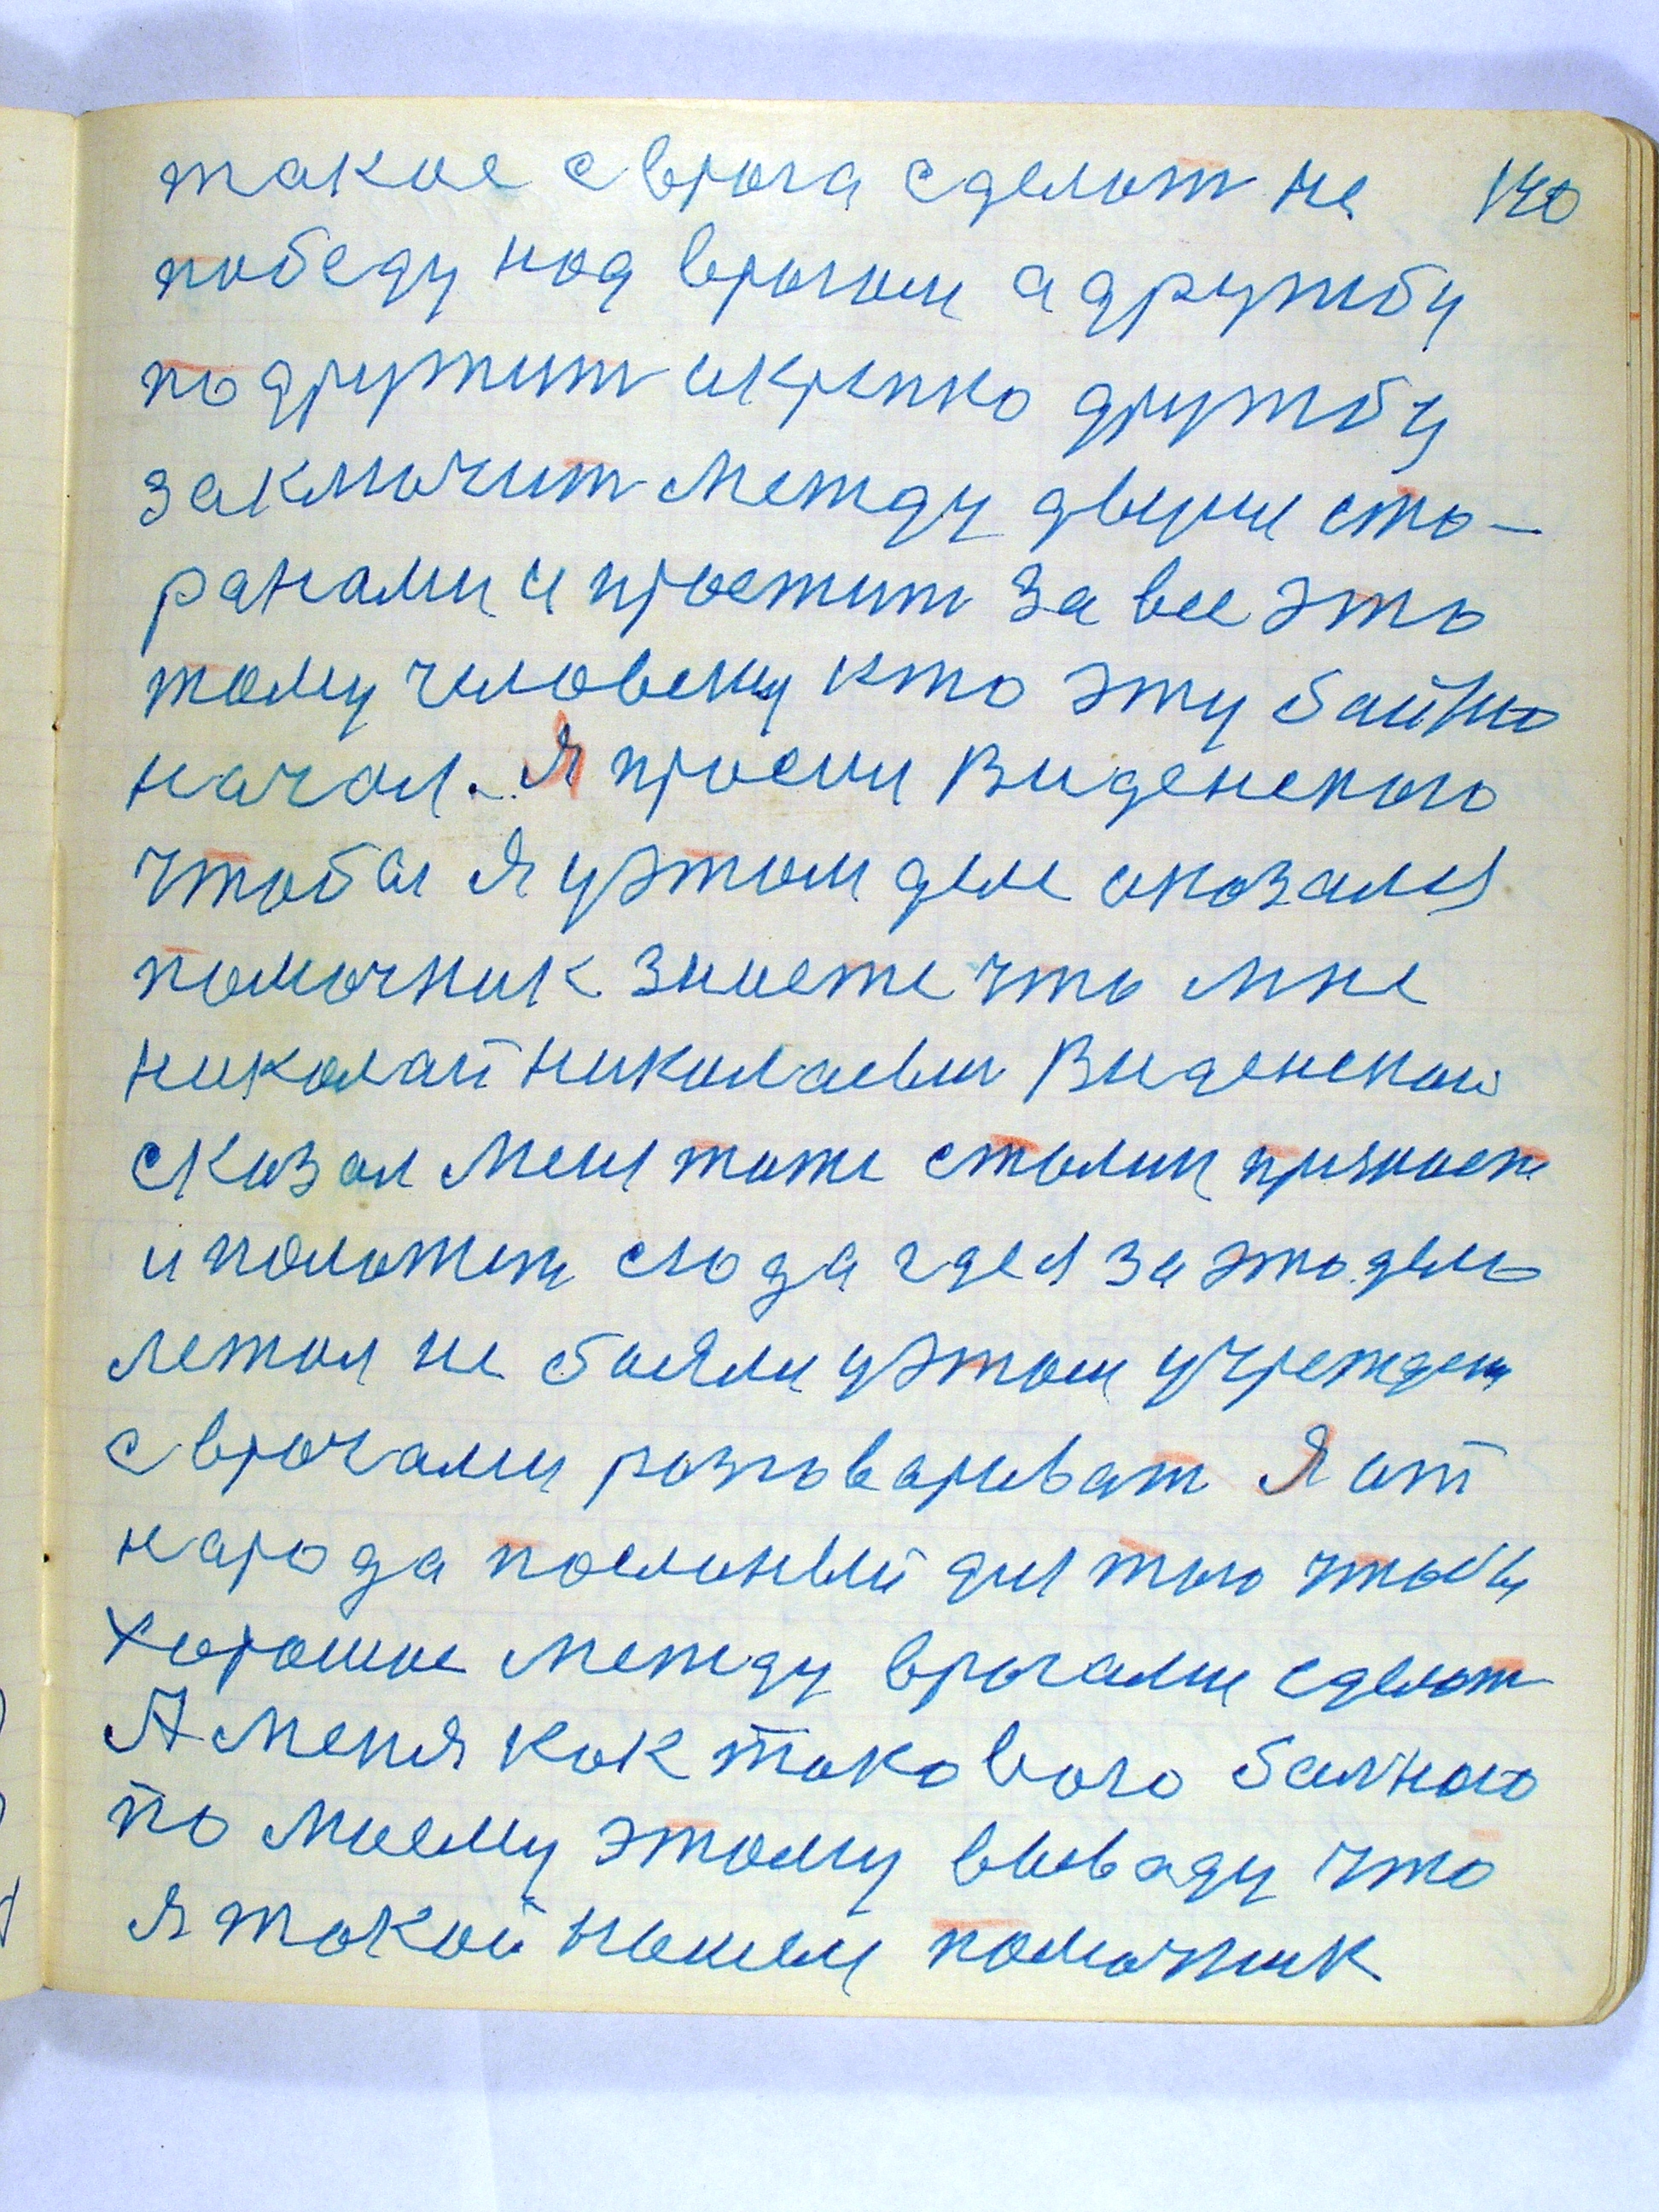 такое с врога сделот не 140
победу над врогом а дружбу
подружит икрепко дружбу
заключит между двумя сто-
ранами и простит за все это
тому человеку кто эту байню
начал. Я просил Виденского
чтобы я уэтом деле оказался
помочник знаете что мне
николай николаевич Виденской
сказал меня тоже сталин признает
и положит сюда где я за это дело
летал не боялся уэтом учрежден
с врочами розговариват Я от
народа посланый для того чтобы
хорошое между врогами сделот
А меня как таковово балного
по моему этому вываду что
я такой нашем помочник